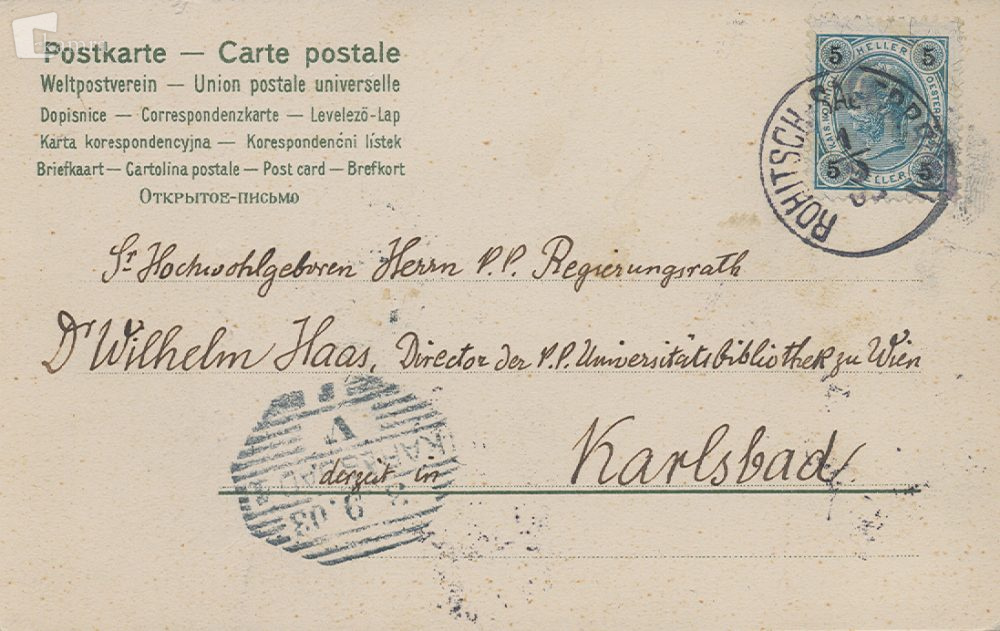 Postkarte — Carte postale
Weltpostverein — Union postale universelle
Dopisnice — Correspondenzkarte — Levelező-Lap
Karta korespondencyjna — Korespondenčni listek
Briefkaart — Cartolina postale — Post card — Brefkort
Открытое-письмо
5 HELLER 5
5 HELLER 5
ROHITSCH-SAUERBR
Sr Hochwohlgeboren Herrn P.P. Regierungsrath
Dr Wilhelm Haas, Director der P.P. Universitätsbibliothek zu Wien
derzeit in Karlsbad.
KARLSBAD
V
9.03